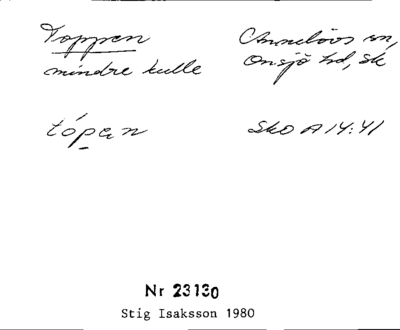 Toppen
Annelövs sn,
mindre kulle
Onsjö hd, Sk
tópan
Sko A 14:41
Nr 23130
Stig Isaksson 1980